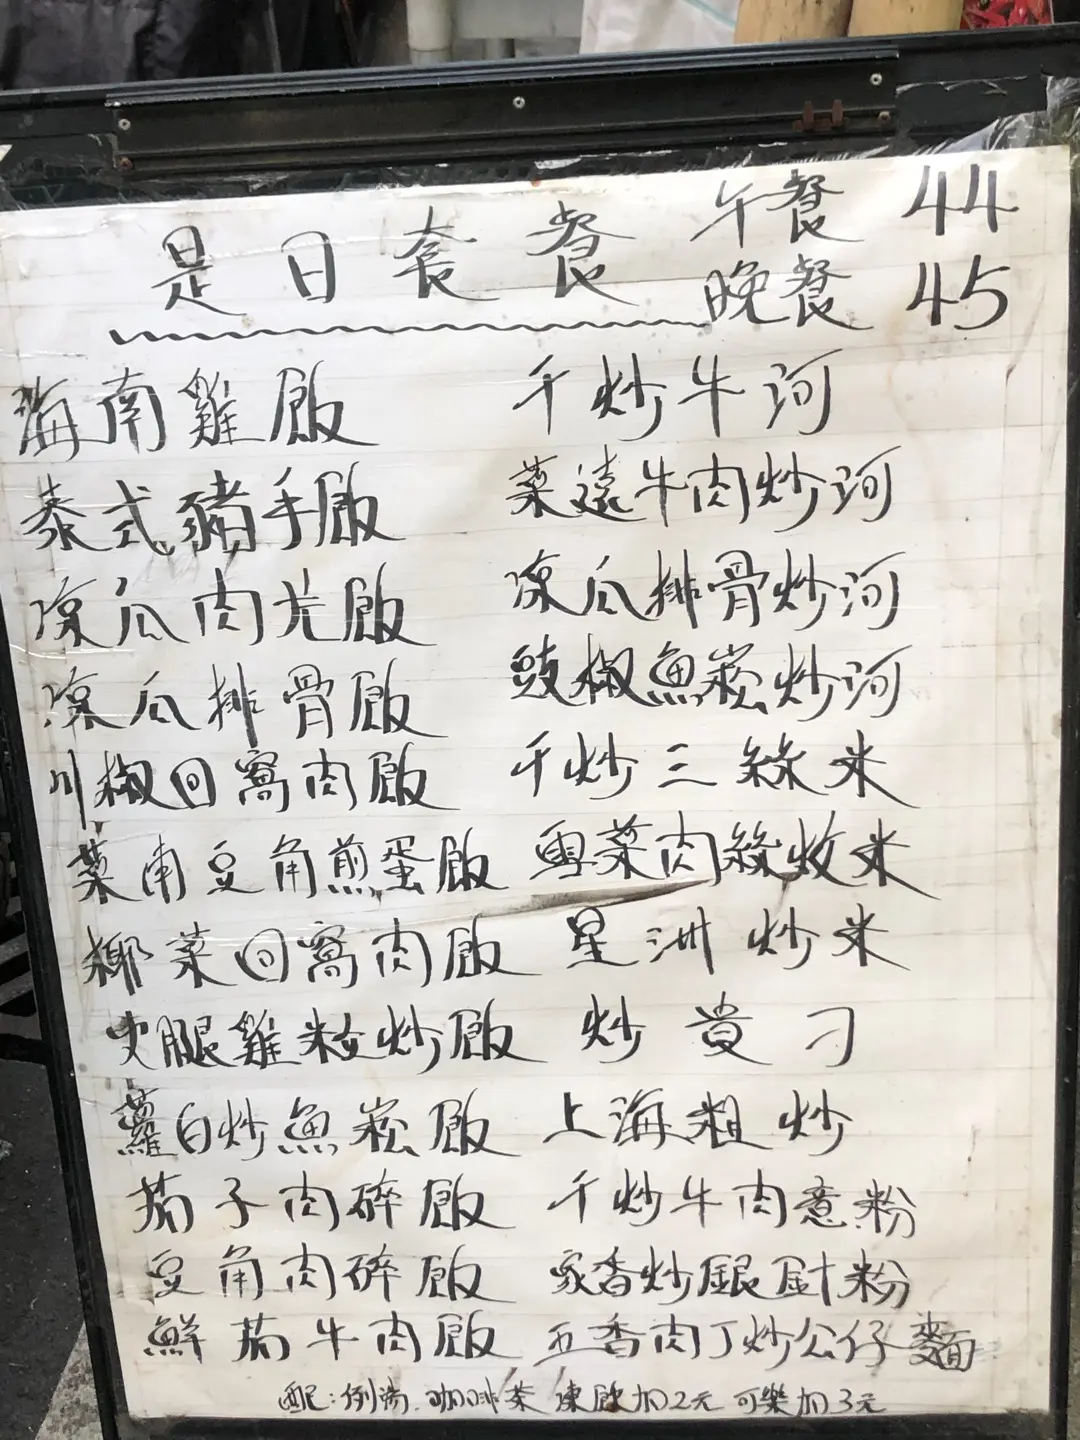 是日套餐 午餐 44
晚餐 45
海南雞飯
泰式豬手飯
凉瓜肉片飯
凉瓜排骨飯
川椒回窩肉飯
菜甫豆角煎蛋飯
椰菜回窩肉飯
火腿雞粒炒飯
蘿白炒魚崧飯
茄子肉碎飯
豆角肉碎飯
鮮茄牛肉飯
干炒牛河
菜遠牛肉炒河
凉瓜排骨炒河
豉椒魚崧炒河
干炒三絲米
雪菜肉絲炆米
星洲炒米
炒貴刁
上海粗炒
干炒牛肉意粉
家香炒銀針粉
五香肉丁炒公仔麵
配:例湯 咖啡茶 凍飲加2元 可樂加3元